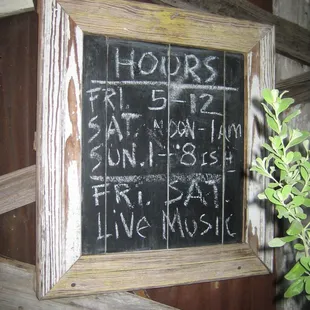 HOURS
FRI. 5-12
SAT. NOON-1AM
SUN. 1-8ISH
FRI. SAT.
LIVE MUSIC